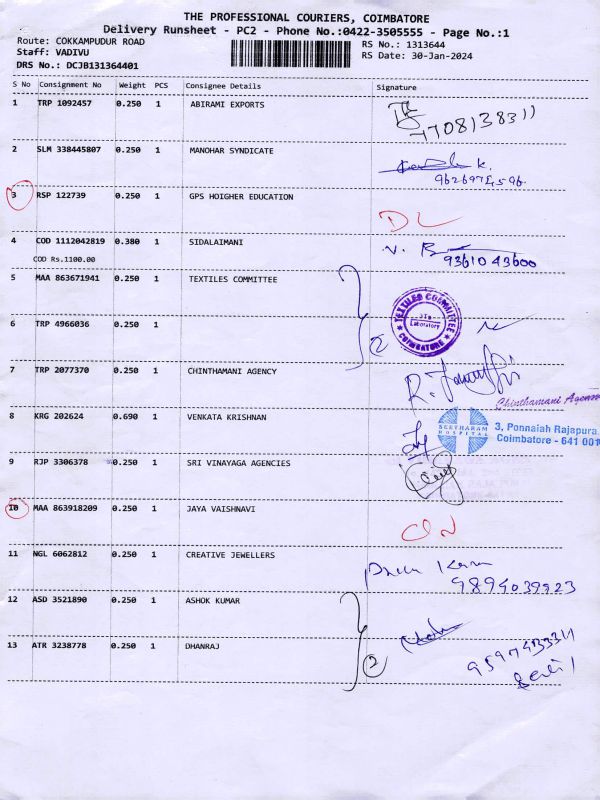 THE PROFESSIONAL COURIERS, COIMBATORE
Delivery Runsheet - PC2 - Phone No.:0422-3505555 - Page No.:1
Route: COKKAMPUDUR ROAD
Staff: VADIVU
DRS No.: DCJB131364401
RS No.: 1313644
RS Date: 30-Jan-2024
S No Consignment No Weight PCS Consignee Details Signature
1 TRP 1092457 0.250 1 ABIRAMI EXPORTS
7708138311
2 SLM 338445807 0.250 1 MANOHAR SYNDICATE
K.
3 RSP 122739 0.250 1 GPS HOIGHER EDUCATION
DL
4 COD 1112042819 0.380 1 SIDALAIMANI
COD Rs.1100.00
9361043600
5 MAA 863671941 0.250 1 TEXTILES COMMITTEE
TEXTILES COMMITTEE
Laboratory
COIMBATORE
6 TRP 4966036 0.250 1
2
7 TRP 2077370 0.250 1 CHINTHAMANI AGENCY
Chinthamani
8 KRG 202624 0.690 1 VENKATA KRISHNAN
SEETHARAM
HOSPITAL
3, Ponnaiah Rajapura
Coimbatore - 641 001
9 RJP 3306378 0.250 1 SRI VINAYAGA AGENCIES
10 MAA 863918209 0.250 1 JAYA VAISHNAVI
11 NGL 6062812 0.250 1 CREATIVE JEWELLERS
9894039923
12 ASD 3521890 0.250 1 ASHOK KUMAR
13 ATR 3238778 0.250 1 DHANRAJ
2